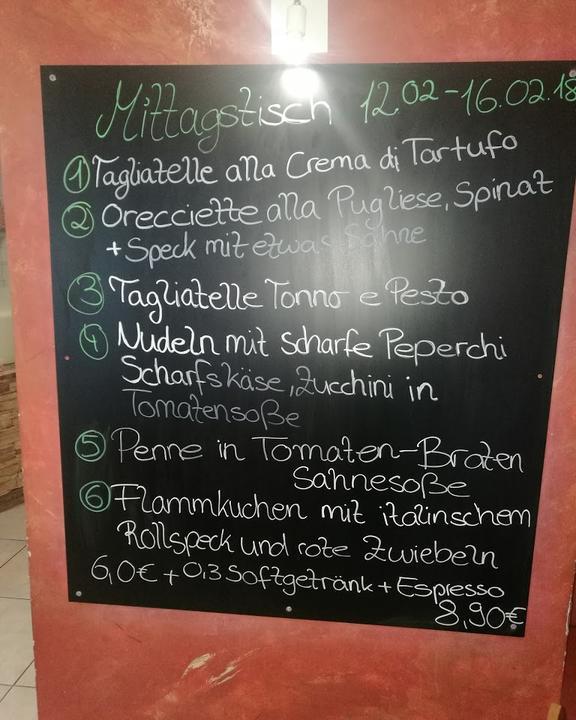 Mittagstisch 12.02-16.02.18
① Tagliatelle alla Crema di Tartufo
② Orecciette alla Pugliese, Spinat
+ Speck mit etwas Sahne
③ Tagliatelle Tonno e Pesto
④ Nudeln mit scharfe Peperchi
Scharfskäse, Zucchini in
Tomatensoße
⑤ Penne in Tomaten-Braten
Sahnesoße
⑥ Flammkuchen mit italinschem
Rollspeck und rote Zwiebeln
6,0€ + 0,3 Softgetränk + Espresso
8,90€